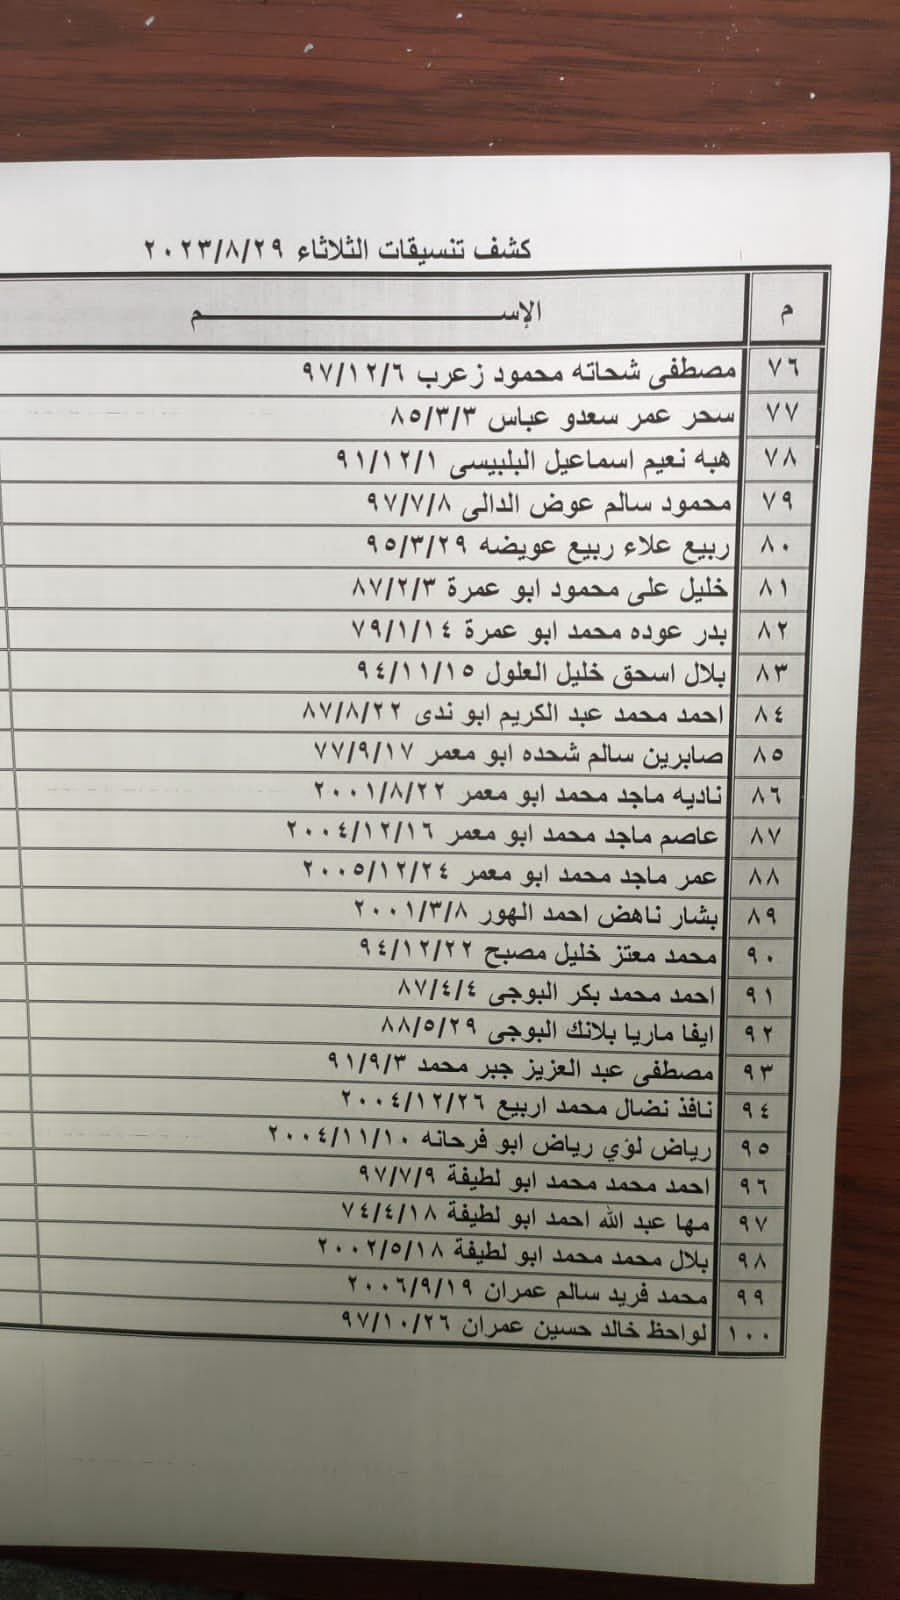 كشف تنسيقات الثلاثاء ٢٠٢٣/٨/٢٩
م الإســـــــــــــــــــــــم
٧٦ مصطفى شحاته محمود زعرب ٩٧/١٢/٦
٧٧ سحر عمر سعدو عباس ٨٥/٣/٣
٧٨ هبه نعيم اسماعيل البلبيسى ٩١/١٢/١
٧٩ محمود سالم عوض الدالى ٩٧/٧/٨
٨٠ ربيع علاء ربيع عويضه ٩٥/٣/٢٩
٨١ خليل على محمود ابو عمرة ٨٧/٢/٣
٨٢ بدر عوده محمد ابو عمرة ٧٩/١/١٤
٨٣ بلال اسحق خليل العلول ٩٤/١١/١٥
٨٤ احمد محمد عبد الكريم ابو ندى ٨٧/٨/٢٢
٨٥ صابرين سالم شحده ابو معمر ٧٧/٩/١٧
٨٦ ناديه ماجد محمد ابو معمر ٢٠٠١/٨/٢٢
٨٧ عاصم ماجد محمد ابو معمر ٢٠٠٤/١٢/١٦
٨٨ عمر ماجد محمد ابو معمر ٢٠٠٥/١٢/٢٤
٨٩ بشار ناهض احمد الهور ٢٠٠١/٣/٨
٩٠ محمد معتز خليل مصبح ٩٤/١٢/٢٢
٩١ احمد محمد بكر البوجى ٨٧/٤/٤
٩٢ ايفا ماريا بلانك البوجى ٨٨/٥/٢٩
٩٣ مصطفى عبد العزيز جبر محمد ٩١/٩/٣
٩٤ نافذ نضال محمد اربيع ٢٠٠٤/١٢/٢٦
٩٥ رياض لؤي رياض ابو فرحانه ٢٠٠٤/١١/١٠
٩٦ احمد محمد محمد ابو لطيفة ٩٧/٧/٩
٩٧ مها عبد الله احمد ابو لطيفة ٧٤/٤/١٨
٩٨ بلال محمد محمد ابو لطيفة ٢٠٠٢/٥/١٨
٩٩ محمد فريد سالم عمران ٢٠٠٦/٩/١٩
١٠٠ لواحظ خالد حسين عمران ٩٧/١٠/٢٦